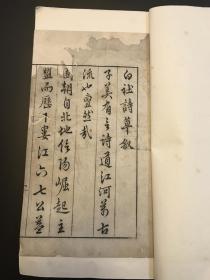 白社詩草敘
子美有言詩道江河萬古
流如亶然哉
國朝自北地信陽崛起主
盟而歷下婁江六七公蓋